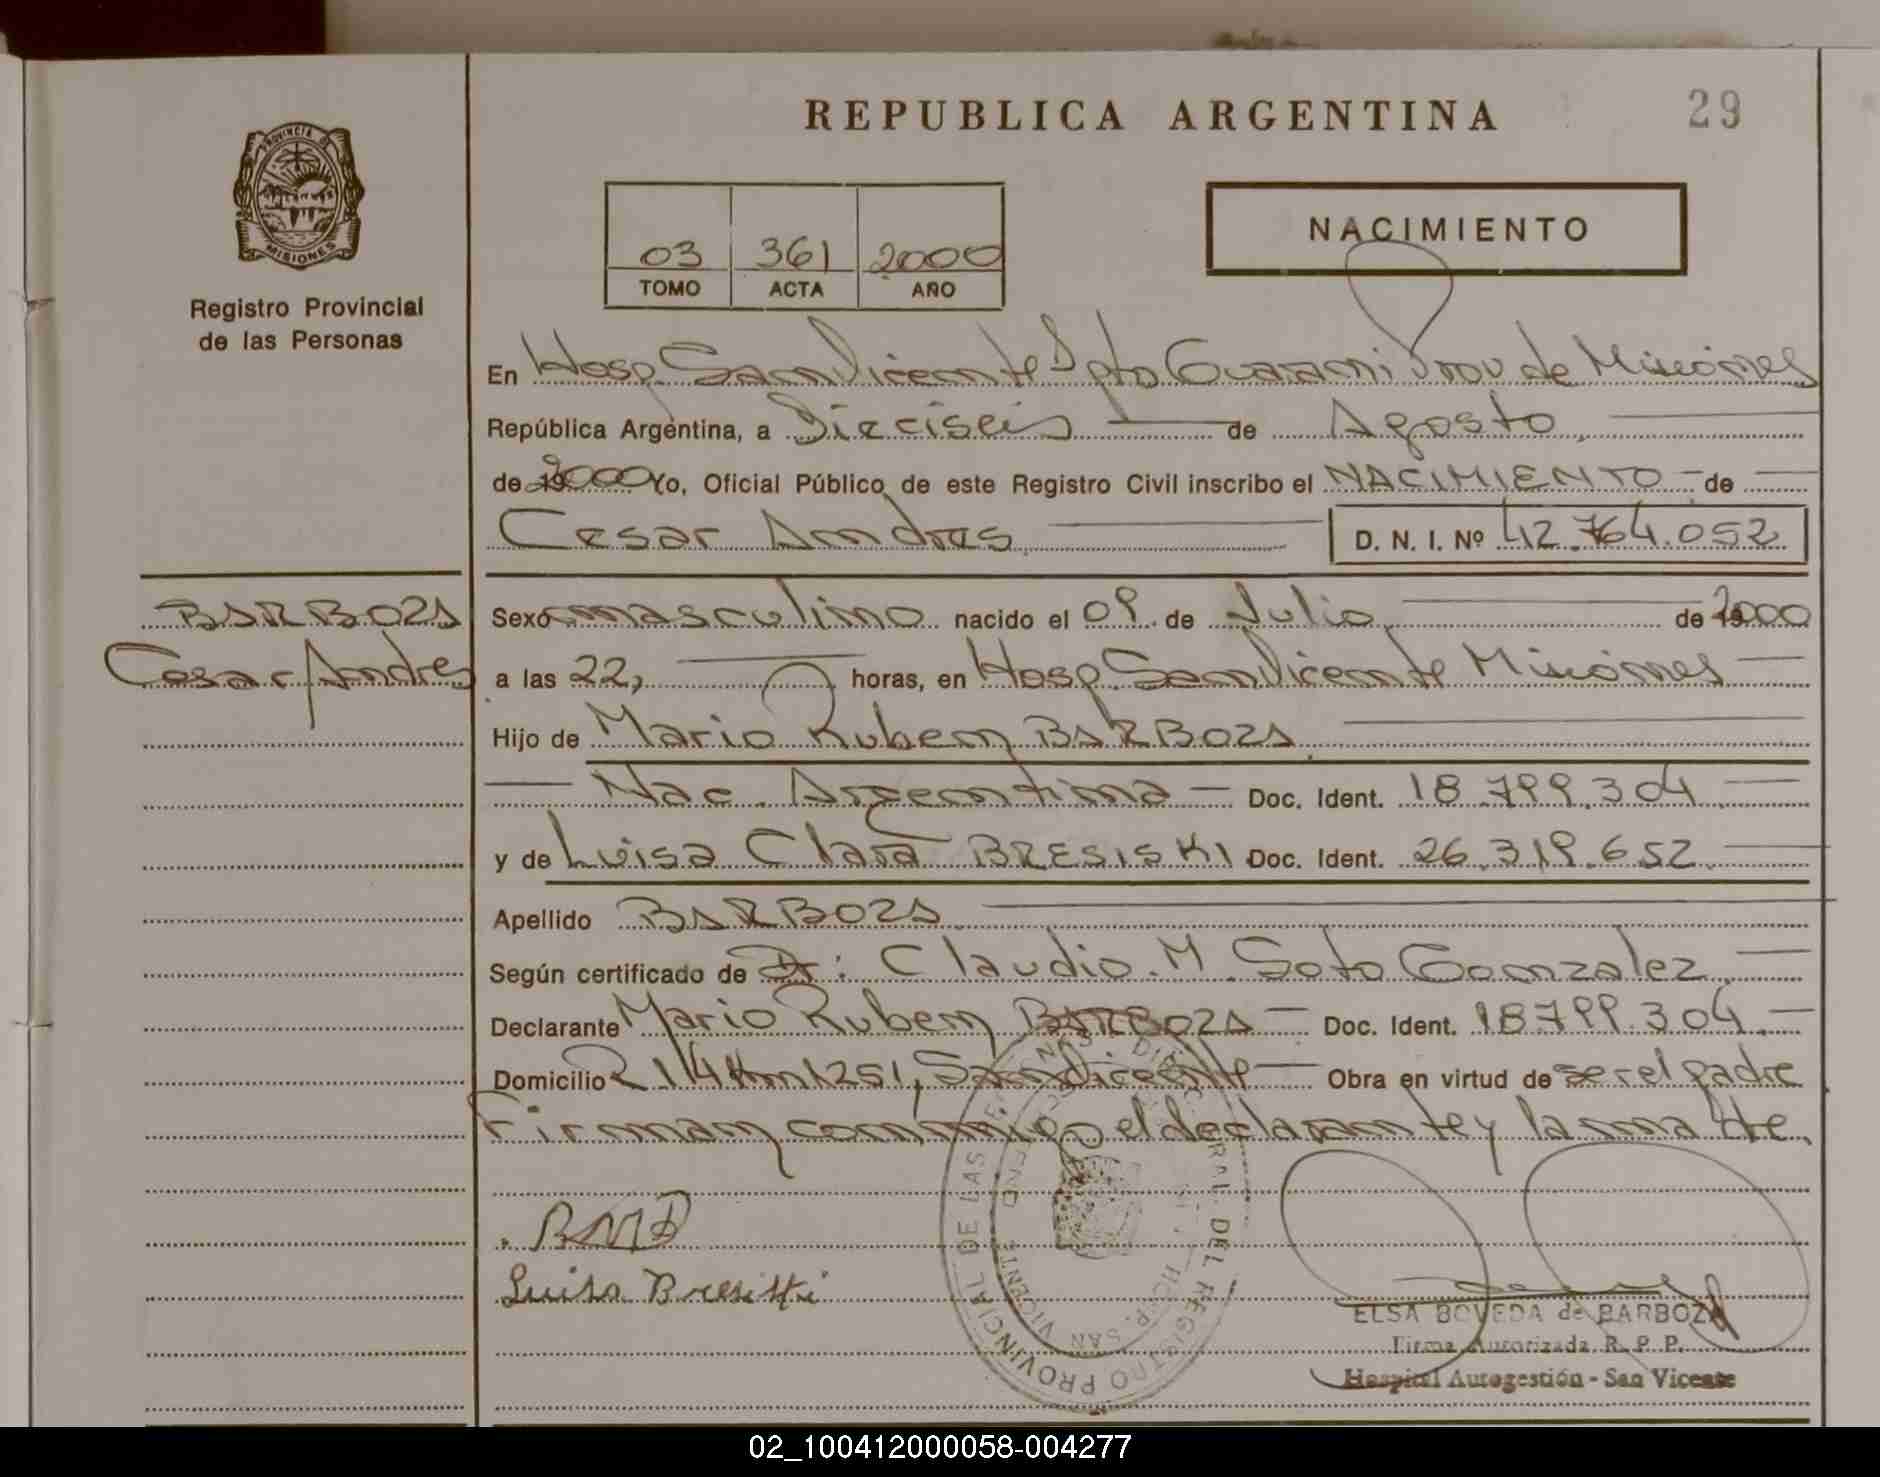 REPUBLICA ARGENTINA
29
PROVINCIA DE
MISIONES
Registro Provincial
de las Personas
03 361 2000
TOMO ACTA AÑO
NACIMIENTO
En Hosp. San Vicente Dpto Guarani Prov de Misiones
República Argentina, a Dieciseis de Agosto
de 2000 Yo, Oficial Público de este Registro Civil inscribo el NACIMIENTO - de
Cesar Andres D. N. I. Nº 42.764.052
BARBOZA
Cesar Andres
Sexo masculino nacido el 09 de Julio de 2000
a las 22, horas, en Hosp. San Vicente Misiones
Hijo de Mario Ruben BARBOZA
Nac. Argentina - Doc. Ident. 18.799.304
y de Luisa Clara BRESISKI Doc. Ident. 26.319.652
Apellido BARBOZA
Según certificado de Dr: Claudio.M.Soto Gonzalez
Declarante Mario Ruben BARBOZA - Doc. Ident. 18.799.304.-
Domicilio R 14 Km 1251, San Vicente Obra en virtud de ser el padre
Firman conmigo el declarante y la madre.
Luisa Bresiski
DIREC. GRAL. DEL REGISTRO PROVINCIAL DE LAS PERSONAS
HOSP. SAN VICENTE
ELSA BOVEDA de BARBOZA
Firma Autorizada R. P. P.
Hospital Autogestión - San Vicente
02_100412000058-004277